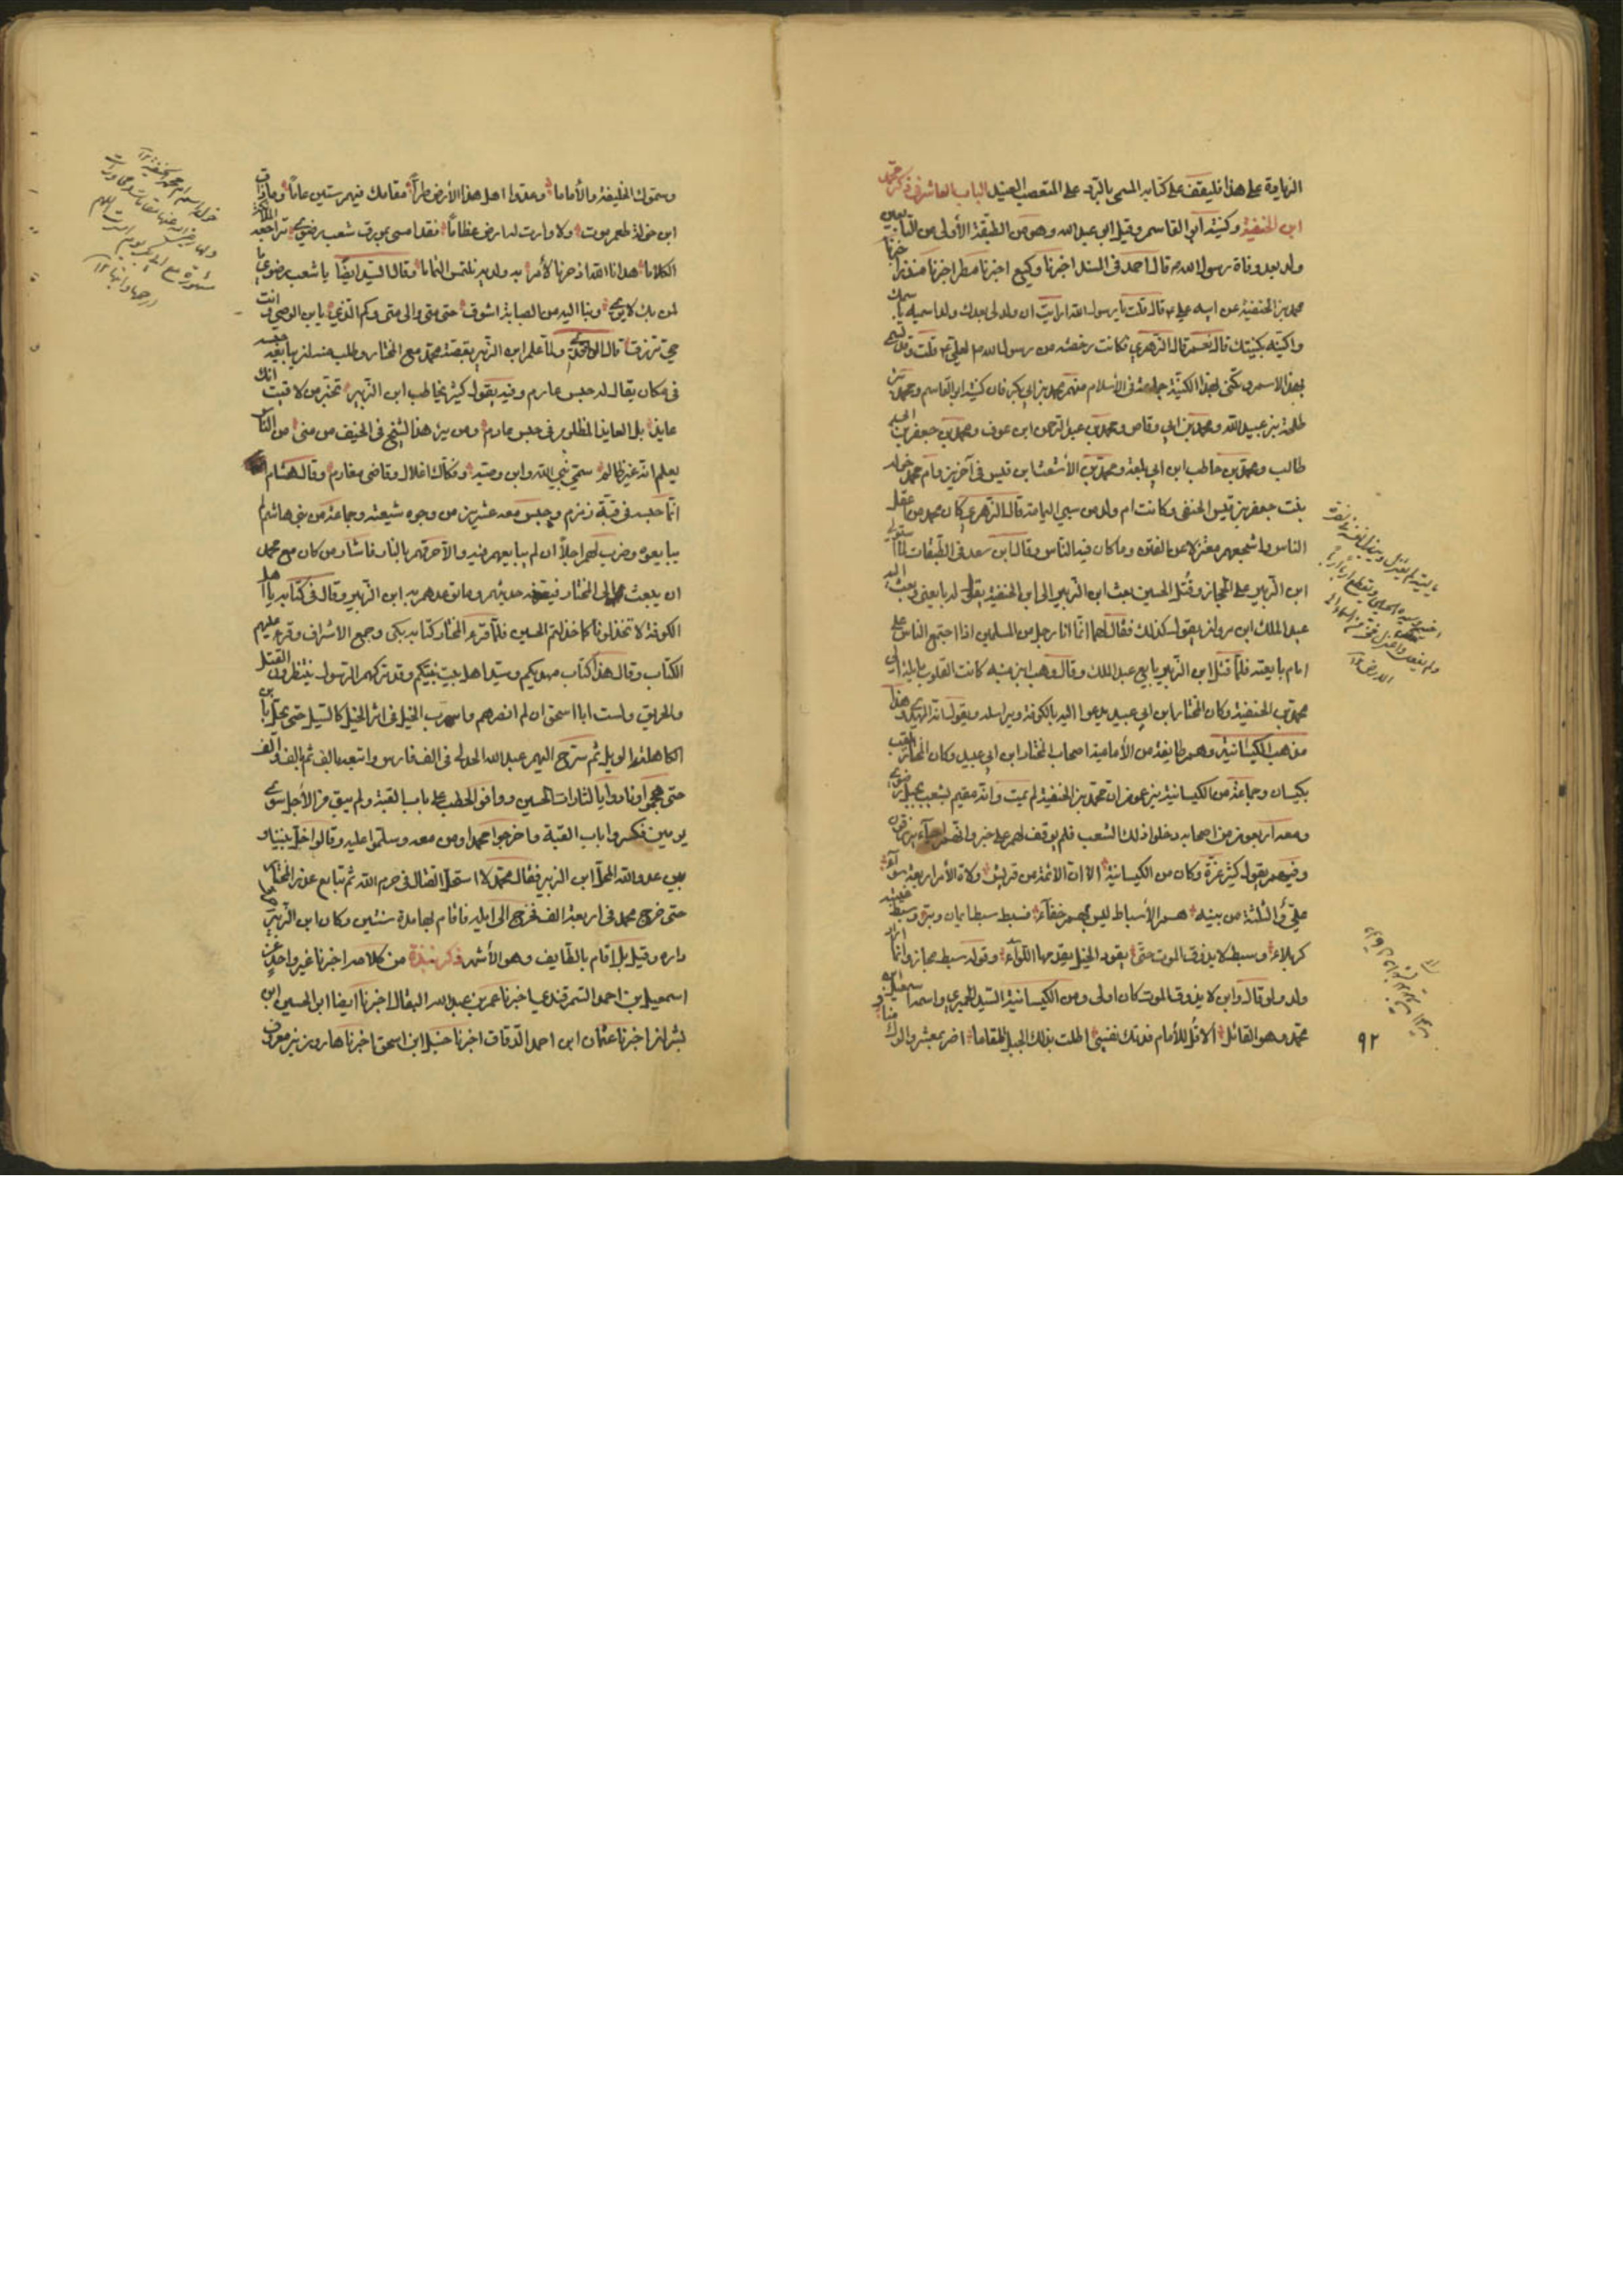 النهاية على هذا فليقف على كتابه المسمى بالرد على المتعصب العنيد الباب العاشر في ذكر محمد
ابن الحنفية وكنيته ابو القاسم وقيل ابو عبد الله وهو من الطبقة الأولى من التابعين
ولد بعد وفاة رسول الله م قال احمد في المسند اخبرنا وكيع اخبرنا مطر اخبرنا منذر اخبرنا
محمد بن الحنفية عن ابيه علي ع قال قلت يا رسول الله ارايت ان ولد لي بعدك ولد اسميه باسمك
واكنيه بكنيتك قال نعم قال الزهري فكانت رخصة من رسول الله م لعلي ع قلت وقد تسمى
بهذا الاسم وتكنى بهذا الكنية جماعة في الأسلام منهم محمد بن ابي بكر فان كنيته ابو القاسم ومحمد بن
طلحة بن عبيد الله ومحمد بن ابي وقاص ومحمد بن عبد الرحمن ابن عوف ومحمد بن جعفر بن ابي
طالب ومحمد بن حاطب ابن ابي بلتعة ومحمد بن الأشعث ابن قيس في آخرين وام محمد خولة
بنت جعفر بن قيس الحنفي وكانت ام ولد من سبي اليمامة قال الزهري كان محمد من اعقل
الناس واشجعهم معتزلا عن الفتن وما كان فيه الناس وقال ابن سعد في الطبقات لما استولى
ابن الزبير على الحجاز وقتل الحسين بعث ابن الزبير الى ابن الحنفية يقول له بايعني وبعث اليه
عبد الملك ابن مروان يقول كذلك فقال لهما انما انا رجل من المسلمين اذا اجتمع الناس على
امام بايعته فلما قتل ابن الزبير بايع عبد الملك وقال وهب ابن منبه كانت القلوب مايلة الى
محمد بن الحنفية وكان المختار ابن ابي عبيد يدعوا اليه بالكوفة ويراسله ويقول انه المهدي وهذا
مذهب الكيسانية وهم طايفة من الأمامية اصحاب المختار ابن ابي عبيد وكان المختار يلقب
بكيسان وجماعة من الكيسانية يزعمون ان محمد بن الحنفية لم يمت وانه مقيم بشعب بجبل رضوى
ومعه اربعون من اصحابه دخلوا ذلك الشعب فلم يوقف لهم على خبر وانهم احياء يرزقون
وفيهم يقول كثير عزة وكان من الكيسانية الا ان الائمة من قريش ولاة الأمر اربعة سواء
علي والثلثة من بنيه هم الأسباط ليس بهم خفاء فسبط سبط ايمان وبر وسبط غيبته
كربلاء وسبط لا يذوق الموت حتى يقود الخيل يقدمها اللواء وقوله سبط مجاز وانما اراد
ولد ولو قال وابن لا يذوق الموت كان اولى ومن الكيسانية السيد الحميري واسمه اسمعيل ابن
محمد وهو القائل الا قل للأمام فدتك نفسي اطلت بذلك الجبل المقاما اضر بمعشر والوك منا
٩٢
وسموك الخليفة والأماما وعدوا اهل هذا الأرض طرا مقامك فيهم ستين عاما وما ذاق
ابن خولة طعم موت ولا وارت له ارض عظاما لقد امسى بمورق شعب رضوى تراجعه الملائكة
الكلاما هدانا الله اذ حرنا لأمر به ولديه نلتمس التماما وقال السيد ايضا يا شعب رضوى ما
لمن بك لا يرى وبنا اليه من الصبابة اشوق حتى متى والى متى وكم الذي يا بن الوصي وانت
حي ترزق قال الواقدي ولما علم ابن الزبير بقصة محمد مع المختار وطلب منه ان يبايعه حبسه
في مكان يقال له حبس عارم وفيه يقول كثير يخاطب ابن الزبير تخبر من لاقيت انك
عايذ بل العايذ المظلوم في حبس عارم ومن ير هذا الشيخ في الخيف من منى من الناس
يعلم انه غير ظالم سمي نبي الله وابن وصيه وفكاك اغلال وقاضي مغارم وقال هشام
انما حبسه في قبة زمزم وحبس معه عشرين من وجوه شيعته وجماعة من بني هاشم لم
يبايعوه وضرب لهم اجلا ان لم يبايعهم فيه والا حرقهم بالنار فاشار من كان مع محمد
ان يبعث الى المختار فيعرفه حديثهم وما توعدهم به ابن الزبير وقال في كتابه يا اهل
الكوفة لا تخذلونا كما خذلتم الحسين فلما قرء المختار كتابه بكى وجمع الاشراف وقرء عليهم
الكتاب وقال هذا كتاب مهديكم وسيد اهل بيت نبيكم وقد تركهم الرسول ينتظرون القتل
والحريق ولست ابا اسحق ان لم انصرهم واسرب الخيل في اثر الخيل كالسيل حتى يحل بابن
الكاهلية الويل ثم سرح اليهم عبد الله الجدلي في الف فارس واتبعه بالف ثم بالف والف
حتى هجموا ونادوا يا لثارات الحسين ووافوا الحطب على باب القبة ولم يبق من الأجل سوى
يومين فكسروا باب القبة واخرجوا محمدا ومن معه وسلموا عليه وقالوا خل بيننا و
بين عدو الله المحل ابن الزبير فقال محمد لا استحل القتال في حرم الله ثم تتابع عدد المختار
حتى خرج محمد في اربعة الف فخرج الى ايلة فاقام بها مدة سنتين وكان ابن الزبير
داره وقيل بل اقام بالطايف وهو الأشهر ذكر نبذة من كلامه اخبرنا غير واحد عن
اسمعيل بن احمد السمرقندي اخبرنا عمر بن عبيد الله البقال اخبرنا ايضا ابو الحسين ابن
بشران اخبرنا عثمان ابن احمد الدقاق اخبرنا حنبل ابن اسحق اخبرنا هارون بن معروف